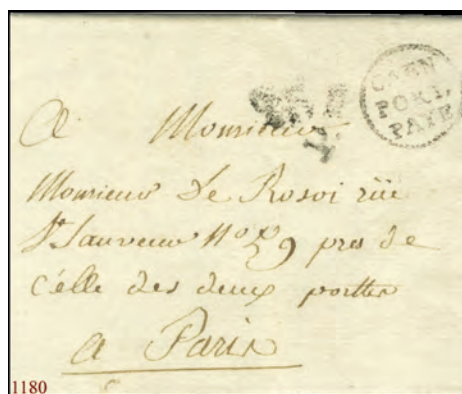 CAEN
PORT
PAYÉ
A Monsieur
Monsieur De Rosoi rüe
St Sauveur No 59 pres de
Celle des deux porttes
a Paris
1180